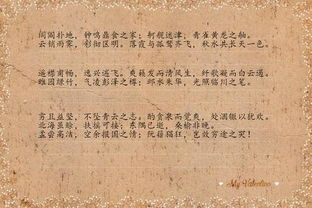 闾阎扑地，钟鸣鼎食之家；舸舰迷津，青雀黄龙之舳。
云销雨霁，彩彻区明。落霞与孤鹜齐飞，秋水共长天一色。
遥襟甫畅，逸兴遄飞。爽籁发而清风生，纤歌凝而白云遏。
睢园绿竹，气凌彭泽之樽；邺水朱华，光照临川之笔。
穷且益坚，不坠青云之志。酌贪泉而觉爽，处涸辙以犹欢。
北海虽赊，扶摇可接；东隅已逝，桑榆非晚。
孟尝高洁，空余报国之情；阮籍猖狂，岂效穷途之哭！
My Valentine